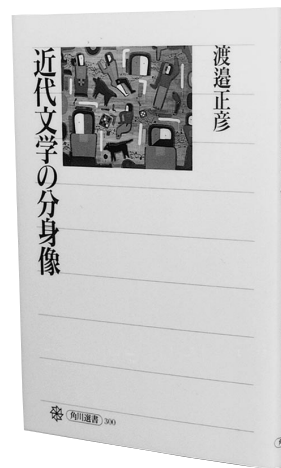 渡邉正彦
近代文学の分身像
角川選書 300